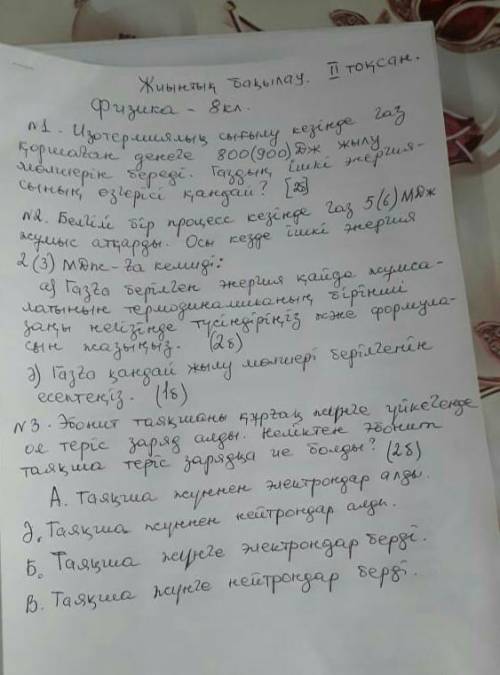 Жиынтық бақылау. II тоқсан.
Физика - 8кл.
№1. Изотермиялық сығылу кезінде газ
қоршаған денеге 800(900) Дж жылу
мөлшерін береді. Газдың ішкі энергия-
сының өзгерісі қандай? [2б]
№2. Белгілі бір процесс кезінде газ 5(6) МДж
жұмыс атқарды. Осы кезде ішкі энергия
2(3) МДж-ға кеміді:
а) Газға берілген энергия қайда жұмса-
латынын термодинамиканың бірінші
заңы негізінде түсіндіріңіз және формула-
сын жазыңыз. (2б)
ә) Газға қандай жылу мөлшері берілгенін
есептеңіз. (1б)
№3. Эбонит таяқшаны құрғақ жүнге үйкегенде
ол теріс заряд алды. Неліктен эбонит
таяқша теріс зарядқа ие болды? (2б)
А. Таяқша жүннен электрондар алды.
Ә. Таяқша жүннен нейтрондар алды.
Б. Таяқша жүнге электрондар берді.
В. Таяқша жүнге нейтрондар берді.